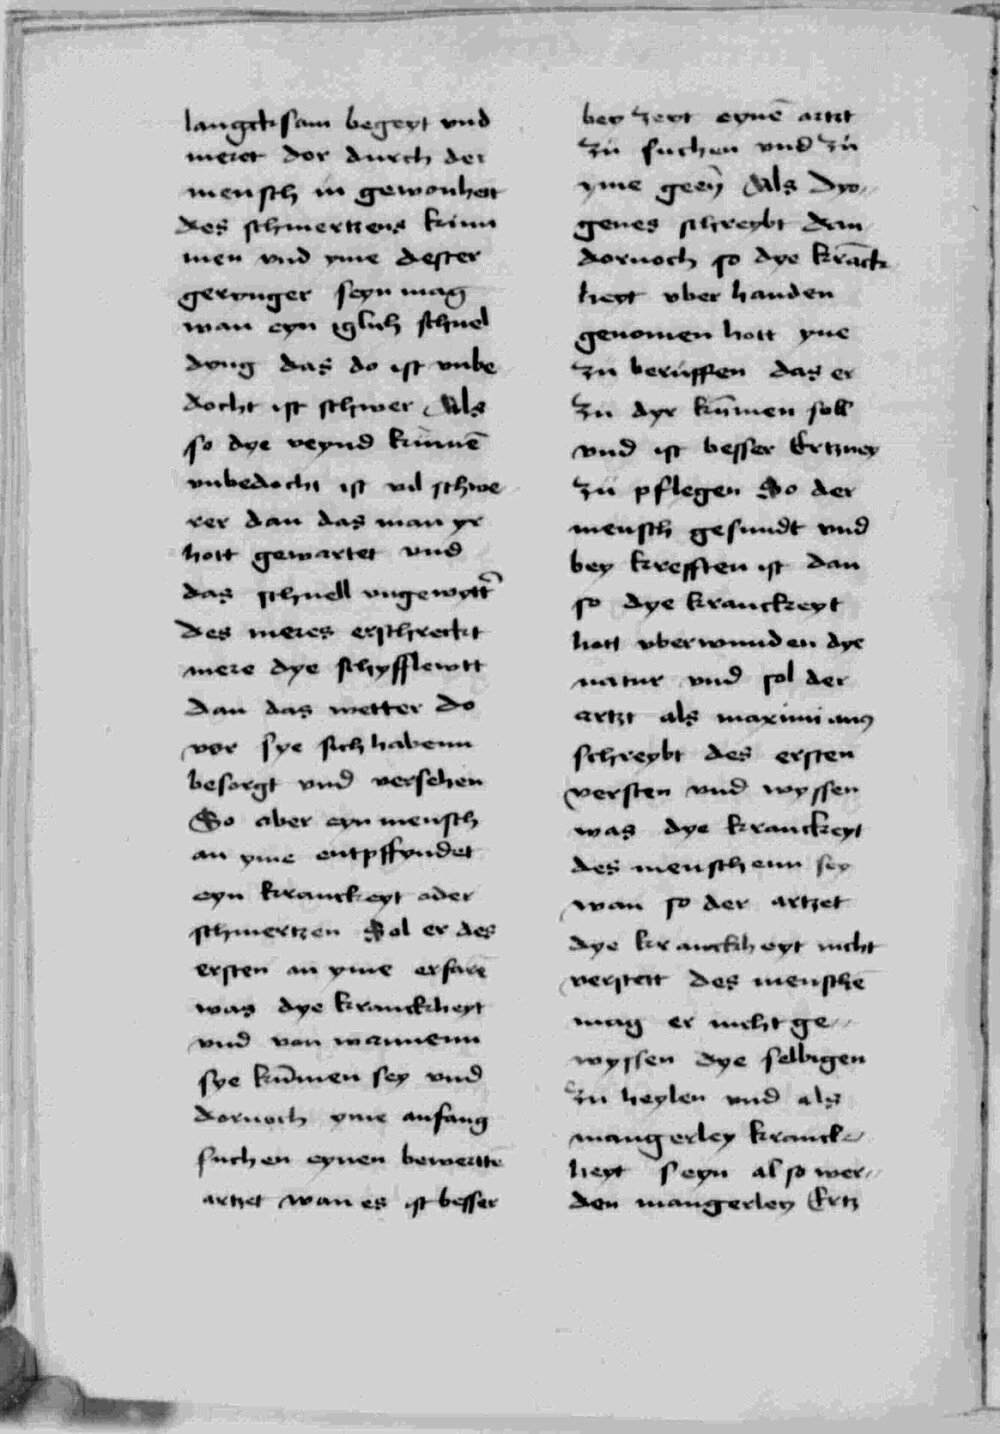 langcksam begeyt vnd
meret dor durch der
mensch in gewonheit
des schmertzens kum
men vnd yme dester
gerynger seyn mag
wan eyn iglich schnel
dyng das do ist vnbe
docht ist schwer Als
so dye veynd kumē
vnbedocht ist vil schwe
rer dan das man yr
hott gewartet vnd
das schnell vngewytt̄
des meres erschreckt
mere dye schyfflewtt
dan das wetter do
vor sye sich habenn
besorgt vnd versehen
So aber eyn mensch
an yme entpffyndet
eyn kranckeyt oder
schmertzen Sol er des
ersten an yme erfarē
was dye kranckheyt
vnd von wannenn
sye kūmen sey vnd
dornoch yme anfang
suchen eynen bewertē
artzet wan es ist besser
bey zeyt eynē artzt
zu suchen vnd zu
yme geen Als Dyo⸗
genes schreybt dan
dornoch so dye krāck
heyt vber handen
genomen hott yne
zu beruffen das er
zu dyr kūmen soll
vnd ist besser Ertzney
zu pflegen So der
mensch gesundt vnd
bey krefften ist dan
so dye kranckeyt
hott vberwunden dye
natur vnd sol der
artzt als maximianus
schreybt des ersten
versten vnd wyssen
was dye kranckeyt
des menschenn sey
wan so der artzet
dye kranckheyt nicht
verstett des menschē
mag er nicht ge⸗
wyssen dye selbigen
zu heylen vnd als
mangerley kranck⸗
heyt seyn also wer⸗
den mangerley Ertz